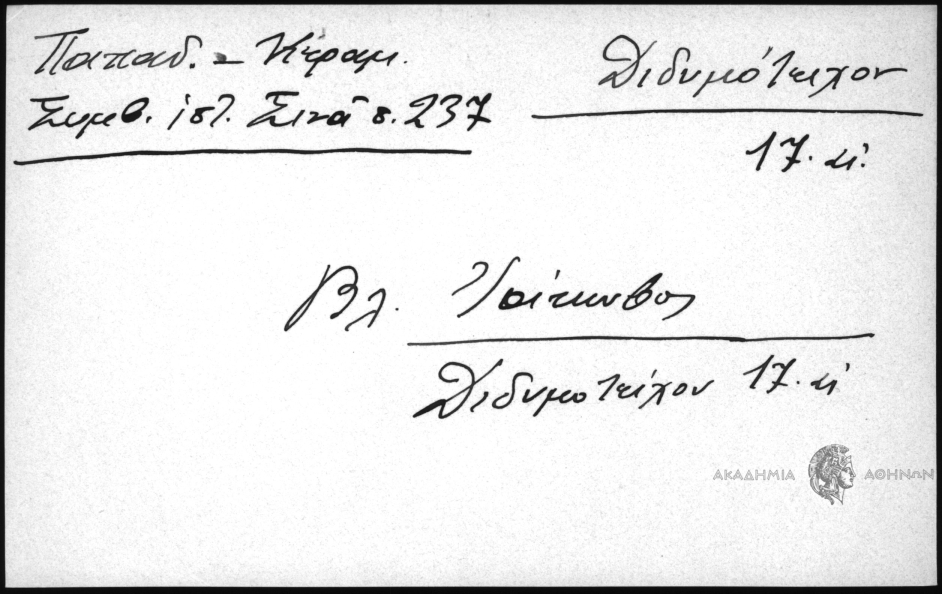 Παπαδ. - Κεραμ.
Συμβ. ἱστ. Σινᾶ σ. 237
Διδυμότειχον
17. αἰ.
Βλ. Ἰάκωβος
Διδυμοτείχου 17. αἰ
ΑΚΑΔΗΜΙΑ ΑΘΗΝΩΝ